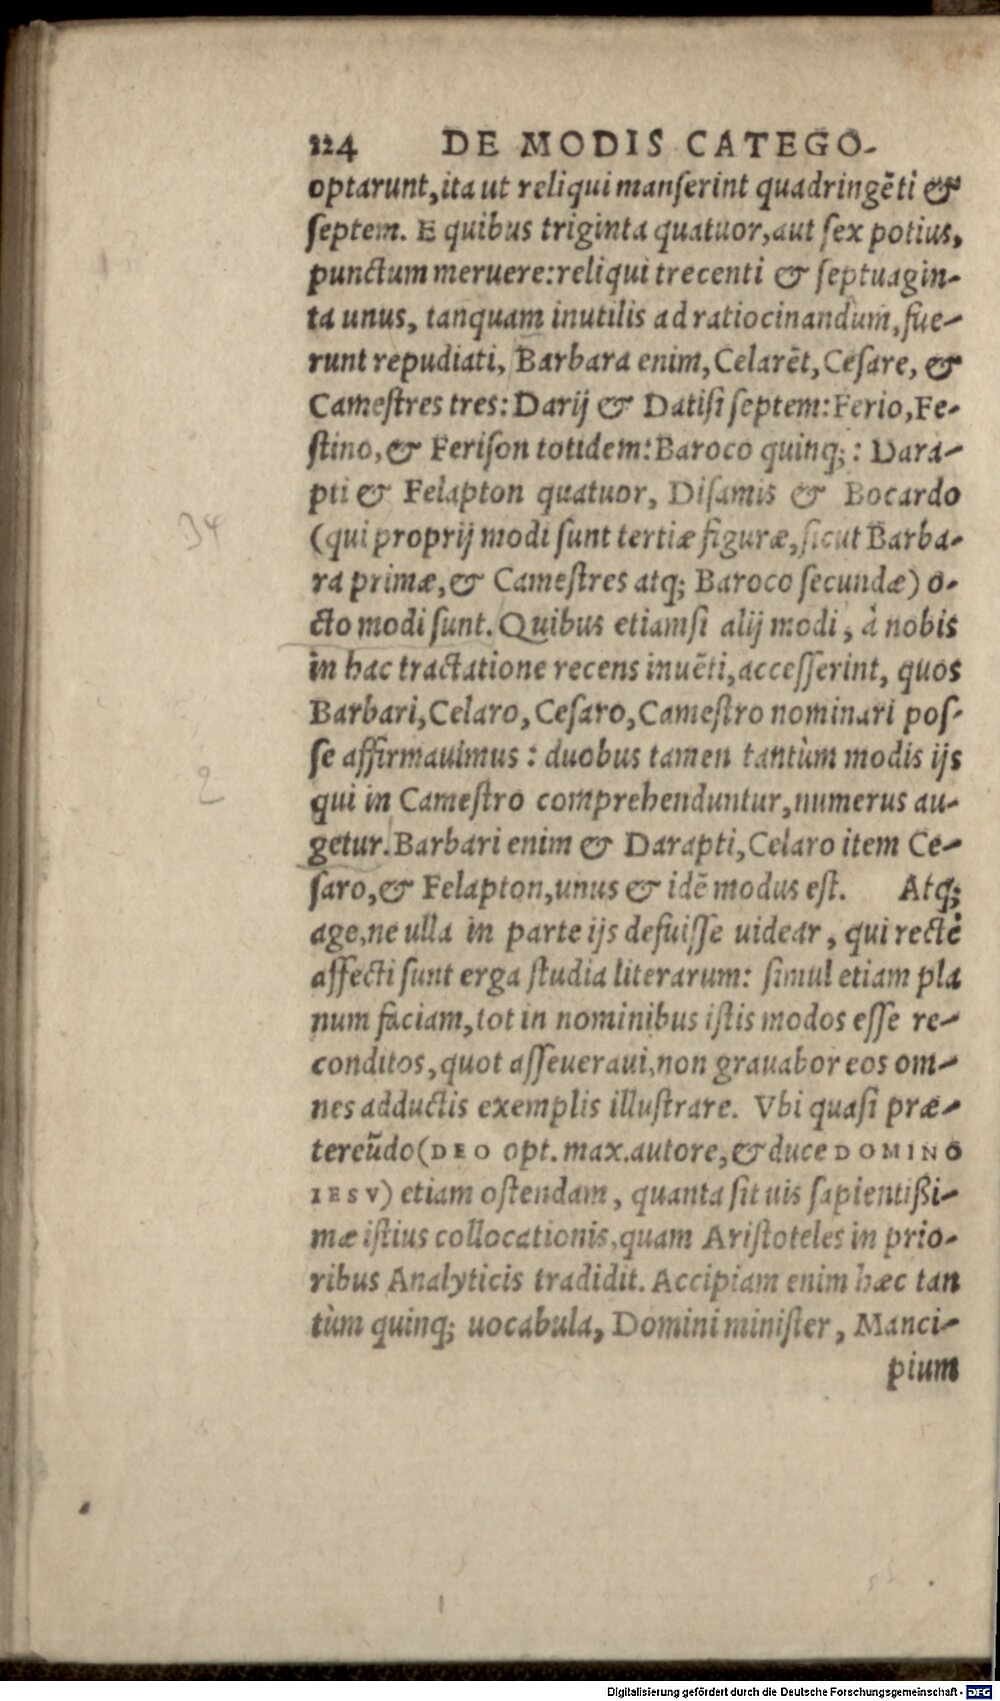 124 DE MODIS CATEGO-
optarunt, ita ut reliqui manserint quadringẽti &
septem. E quibus triginta quatuor, aut sex potius,
punctum meruere: reliqui trecenti & septuagin-
ta unus, tanquam inutilis ad ratiocinandum, fue-
runt repudiati, Barbara enim, Celarẽt, Cesare, &
Camestres tres: Darij & Datisi septem: Ferio, Fe-
stino, & Ferison totidem: Baroco quinq;: Dara-
pti & Felapton quatuor, Disamis & Bocardo
(qui proprij modi sunt tertiæ figuræ, sicut Barba-
ra primæ, & Camestres atq; Baroco secundæ) o-
cto modi sunt. Quibus etiamsi alij modi, à nobis
in hac tractatione recens inuẽti, accesserint, quos
Barbari, Celaro, Cesaro, Camestro nominari pos-
se affirmauimus: duobus tamen tantùm modis ijs
qui in Camestro comprehenduntur, numerus au-
getur. Barbari enim & Darapti, Celaro item Ce-
saro, & Felapton, unus & idẽ modus est. Atq;
age, ne ulla in parte ijs defuisse uidear, qui rectè
affecti sunt erga studia literarum: simul etiam pla
num faciam, tot in nominibus istis modos esse re-
conditos, quot asseueraui, non grauabor eos om-
nes adductis exemplis illustrare. Vbi quasi præ-
tereũdo (DEO opt. max. autore, & duce DOMINO
IESV) etiam ostendam, quanta sit uis sapientißi-
mæ istius collocationis, quam Aristoteles in prio-
ribus Analyticis tradidit. Accipiam enim hæc tan
tùm quinq; uocabula, Domini minister, Manci-
pium
34
2
Digitalisierung gefördert durch die Deutsche Forschungsgemeinschaft - DFG